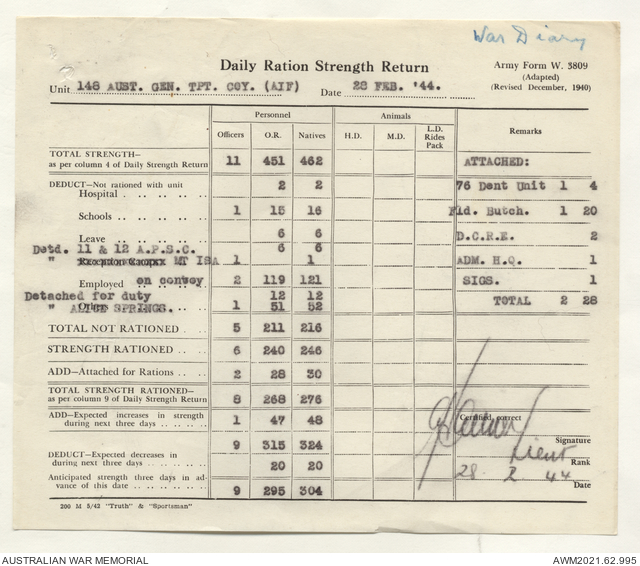 War Diary
Daily Ration Strength Return
Army Form W. 3809
(Adapted)
(Revised December, 1940)
Unit 148 AUST. GEN. TPT. COY. (AIF) Date 28 FEB. '44.
Personnel Animals Remarks
Officers O.R. Natives H.D. M.D. L.D. Rides Pack
TOTAL STRENGTH—
as per column 4 of Daily Strength Return 11 451 462 ATTACHED:
DEDUCT—Not rationed with unit
Hospital 2 2 76 Dent Unit 1 4
Schools 1 15 16 Fld. Butch. 1 20
Leave 6 6 D.C.R.E. 2
Detd. 11 & 12 A.P.S.C. 6 6
" MT ISA 1 1 ADM. H.Q. 1
Employed on convoy 2 119 121 SIGS. 1
Detached for duty 12 12
" ALICE SPRINGS. 1 51 52 TOTAL 2 28
TOTAL NOT RATIONED 5 211 216
STRENGTH RATIONED 6 240 246
ADD—Attached for Rations 2 28 30
TOTAL STRENGTH RATIONED—
as per column 9 of Daily Strength Return 8 268 276
ADD—Expected increases in strength
during next three days 1 47 48
Certified correct
9 315 324
Signature
DEDUCT—Expected decreases in
during next three days 20 20
Lieut
Rank
28. 2 44
Date
Anticipated strength three days in ad-
vance of this date 9 295 304
200 M 5/42 "Truth" & "Sportsman"
AUSTRALIAN WAR MEMORIAL AWM2021.62.995